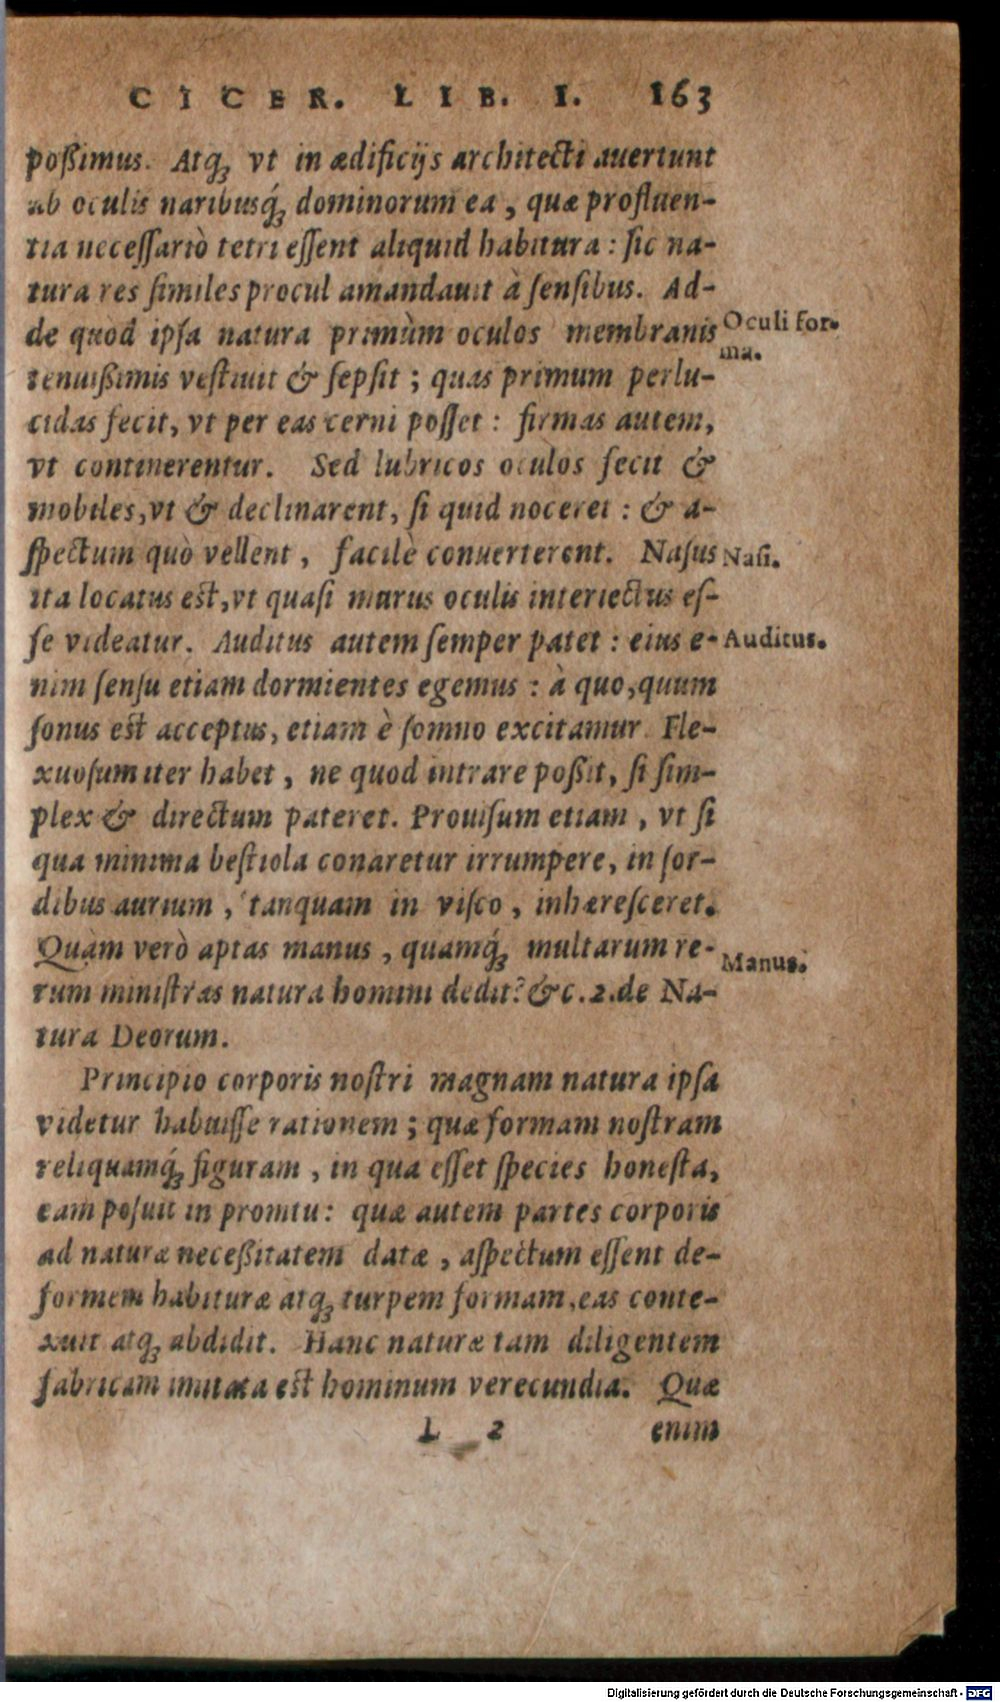 CICER. LIB. I. 163
poßimus. Atq́ꝫ vt in ædificijs architecti auertunt
ab oculis naribusq́ꝫ dominorum ea, quæ profluen-
tia neceſſariò tetri eſſent aliquid habitura: ſic na-
tura res ſimiles procul amandauit à ſenſibus. Ad-
de quòd ipſa natura primùm oculos membranis
Oculi for-
ma.
tenuißimis veſtiuit & ſepſit; quas primum perlu-
cidas fecit, vt per eas cerni poſſet: firmas autem,
vt continerentur. Sed lubricos oculos fecit &
mobiles, vt & declinarent, ſi quid noceret: & a-
ſpectum quò vellent, facilè conuerterent. Naſus
Naſi.
ita locatus eſt, vt quaſi murus oculis interiectus eſ-
ſe videatur. Auditus autem ſemper patet: eius e-
Auditus.
nim ſenſu etiam dormientes egemus: à quo, quum
ſonus eſt acceptus, etiam è ſomno excitamur. Fle-
xuoſum iter habet, ne quod intrare poßit, ſi ſim-
plex & directum pateret. Prouiſum etiam, vt ſi
qua minima beſtiola conaretur irrumpere, in ſor-
dibus aurium, tanquam in viſco, inhæreſceret.
Quàm verò aptas manus, quamq́ꝫ multarum re-
Manus.
rum miniſtras natura homini dedit? &c. 2. de Na-
tura Deorum.
Principio corporis noſtri magnam natura ipſa
videtur habuiſſe rationem; quæ formam noſtram
reliquamq́ꝫ figuram, in qua eſſet ſpecies honeſta,
eam poſuit in promtu: quæ autem partes corporis
ad naturæ neceßitatem datæ, aſpectum eſſent de-
formem habituræ atqꝫ turpem formam, eas conte-
xuit atqꝫ abdidit. Hanc naturæ tam diligentem
fabricam imitata eſt hominum verecundia. Quæ
L 2 enim
Digitalisierung gefördert durch die Deutsche Forschungsgemeinschaft - DFG